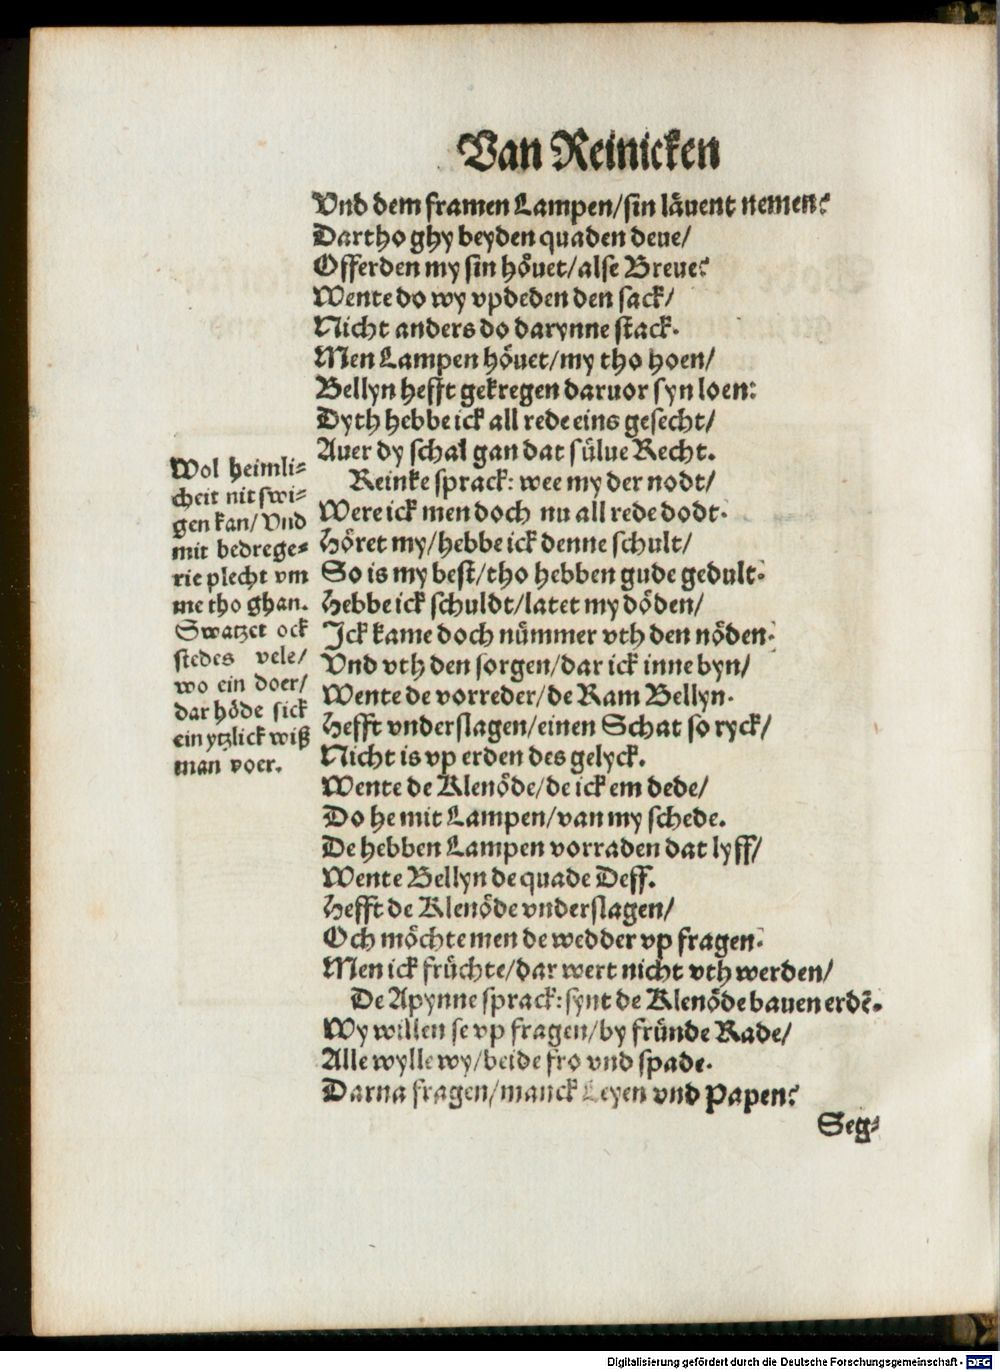 Van Reinicken
Vnd dem framen Lampen/sin läuent nemen?
Dartho ghy beyden quaden deue/
Offerden my sin höuet/alse Breue?
Wente do wy vpdeden den sack/
Nicht anders do darynne stack.
Men Lampen höuet/my tho hoen/
Bellyn hefft gekregen daruor syn loen:
Dyth hebbe ick all rede eins gesecht/
Auer dy schal gan dat sülue Recht.
Reinke sprack: wee my der nodt/
Were ick men doch nu all rede dodt.
Höret my/hebbe ick denne schult/
So is my best/tho hebben gude gedult.
Hebbe ick schuldt/latet my döden/
Ick kame doch nümmer vth den nöden.
Vnd vth den sorgen/dar ick inne byn/
Wente de vorreder/de Ram Bellyn.
Hefft vnderslagen/einen Schat so ryck/
Nicht is vp erden des gelyck.
Wente de Klenöde/de ick em dede/
Do he mit Lampen/van my schede.
De hebben Lampen vorraden dat lyff/
Wente Bellyn de quade Deff.
Hefft de Klenöde vnderslagen/
Och möchte men de wedder vp fragen.
Men ick früchte/dar wert nicht vth werden/
De Apynne sprack: synt de Klenöde bauen erdē.
Wy willen se vp fragen/by fründe Rade/
Alle wylle wy/beide fro vnd spade.
Darna fragen/manck Leyen vnd Papen?
Seg⸗
Wol heimli⸗
cheit nit swi⸗
gen kan/Vnd
mit bedrege⸗
rie plecht vm
me tho ghan.
Swatzet ock
stedes vele/
wo ein doer/
dar höde sick
ein ytzlick wiß
man voer.
Digitalisierung gefördert durch die Deutsche Forschungsgemeinschaft - DFG